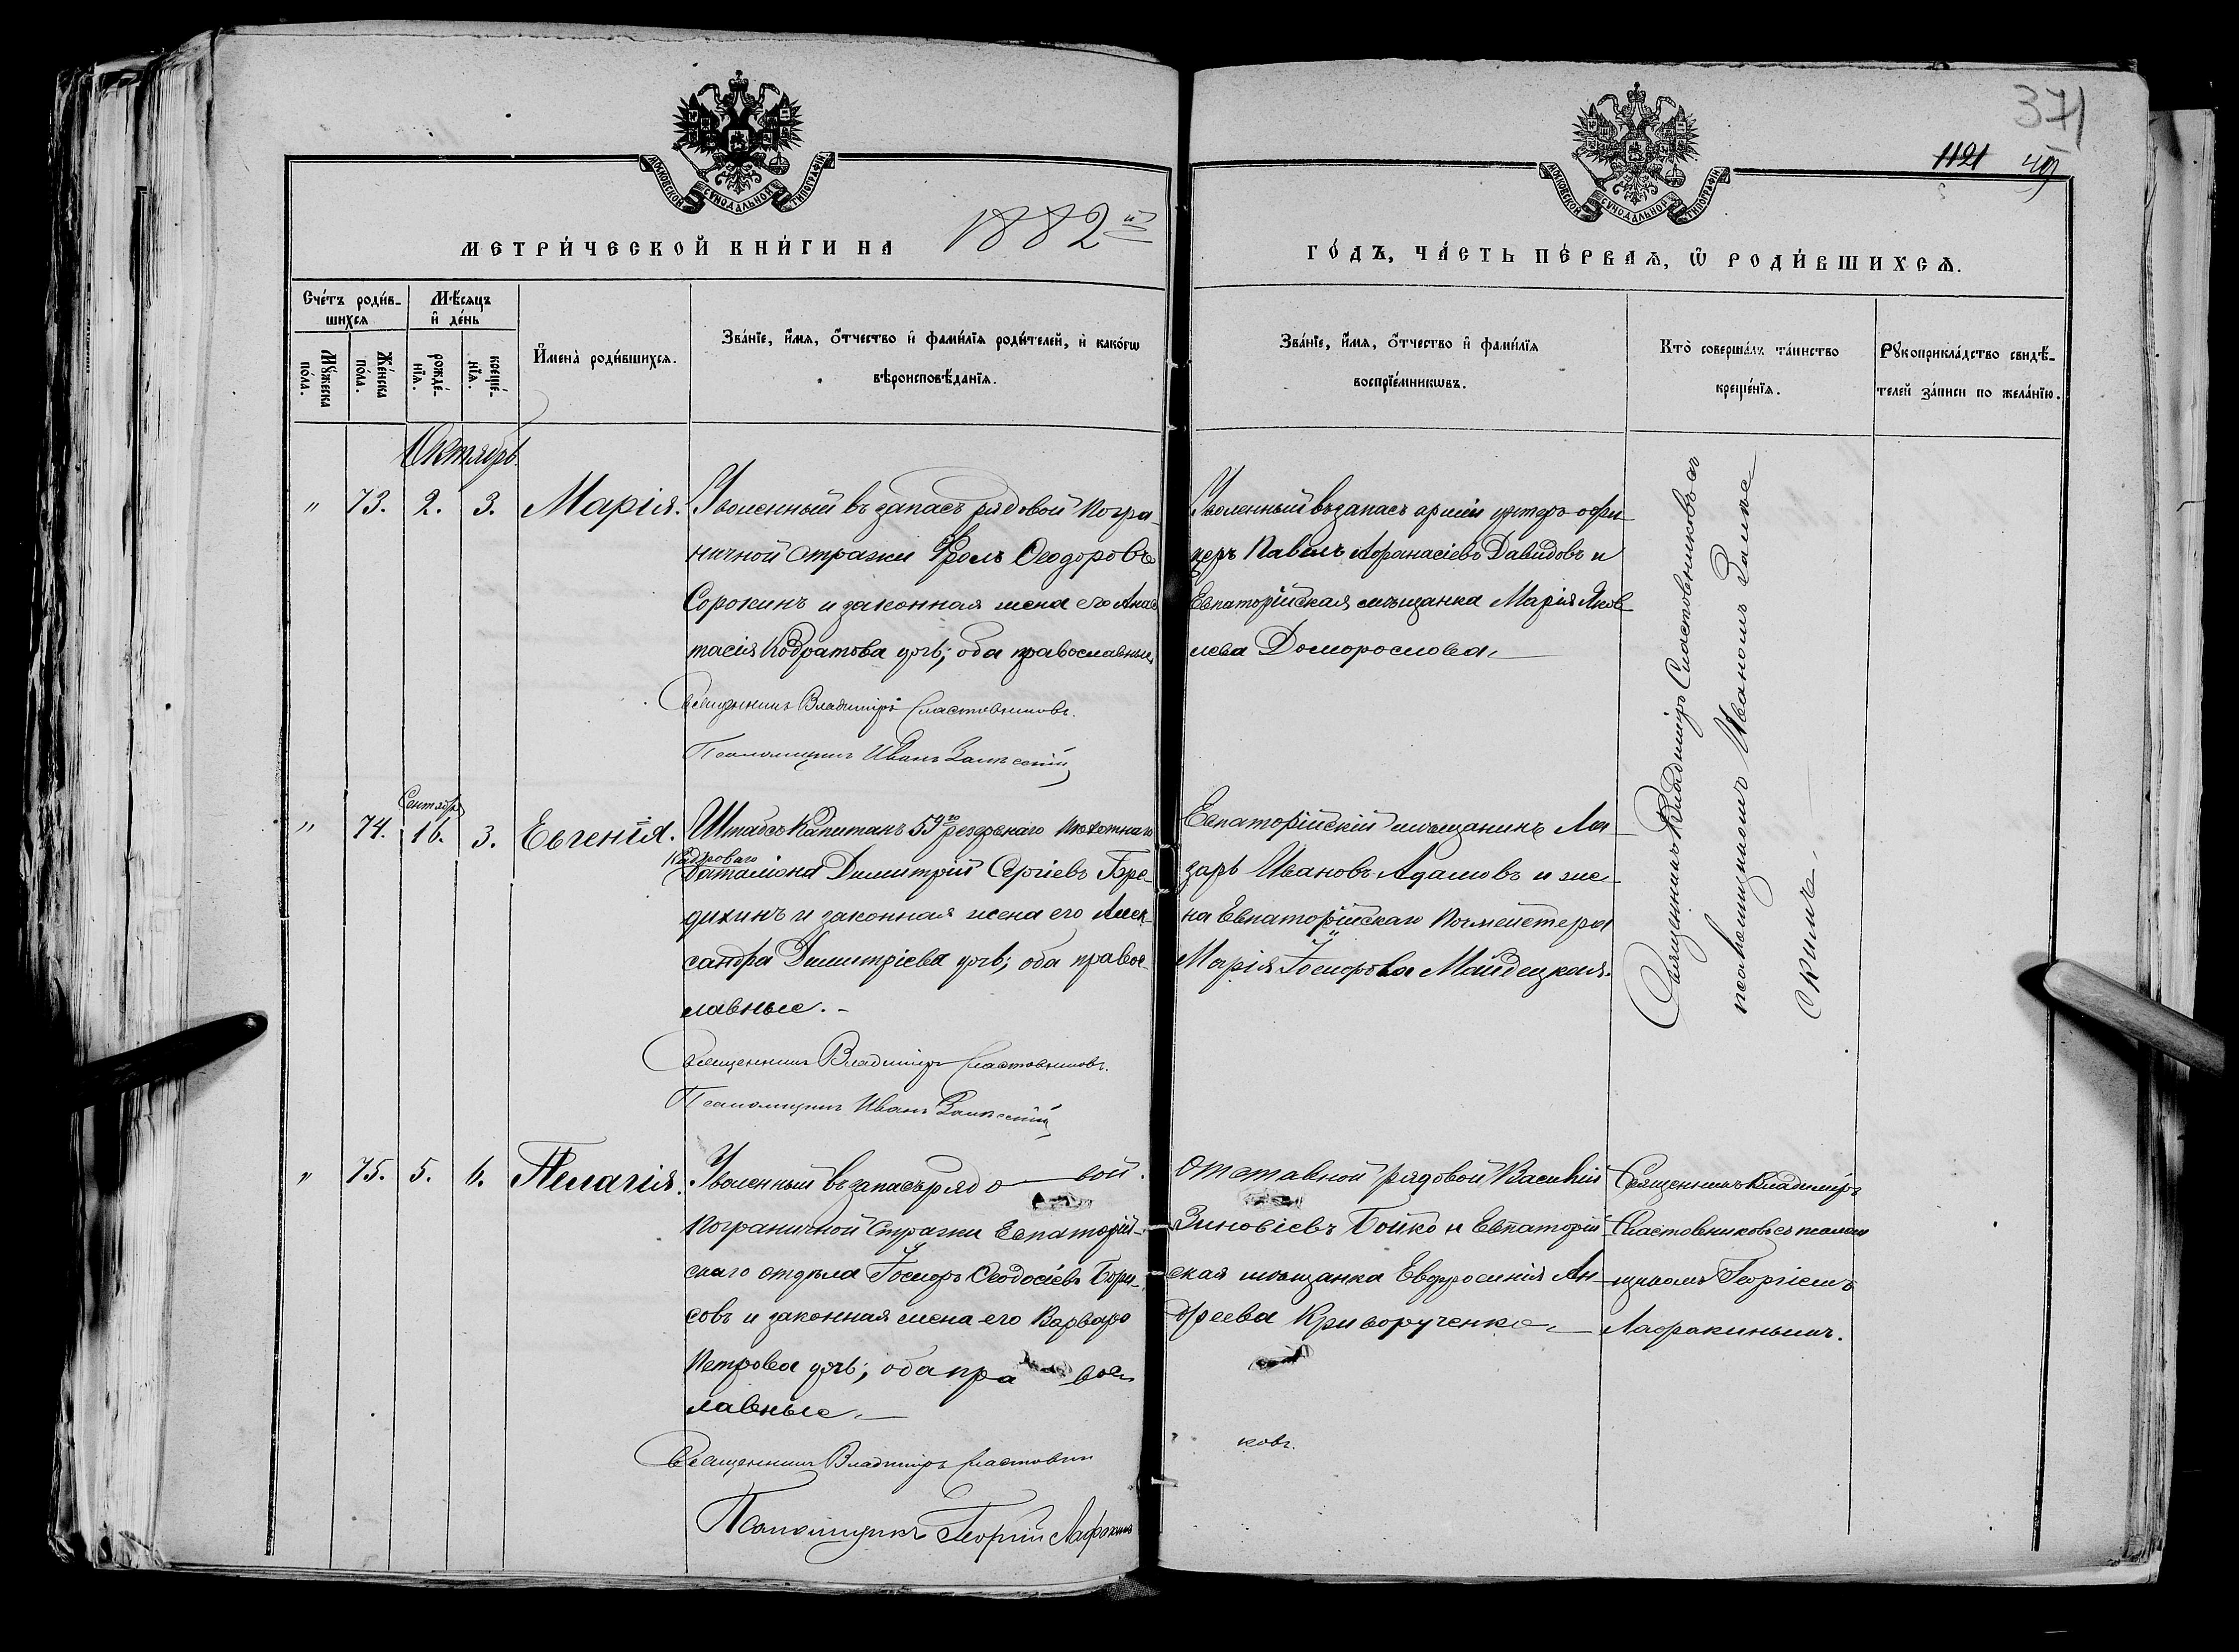 371
1121 49
МОСКОВСКОЙ СѴНОДАЛЬНОЙ ТИПОГРАФІИ
МОСКОВСКОЙ СѴНОДАЛЬНОЙ ТИПОГРАФІИ
МЕТРИ́ЧЕСКОЙ КНИ́ГИ НА 1882й
ГО́ДЪ, ЧА́СТЬ ПЕ́РВАѦ, Ѽ РОДИ́ВШИХСѦ.
Сче́тъ роди́в-
шихсѧ
Мѣ́сѧцъ
и҆ де́нь
Мꙋ́жеска
по́ла.
Же́нска
по́ла.
рожде́-
нїѧ.
креще́-
нїѧ.
И҆мена̀ роди́вшихсѧ.
Зва́нїе, и҆́мѧ, ѻ҆́тчество и҆ фами́лїѧ роди́телей, и҆ како́гѡ
вѣроисповѣ́данїѧ.
Зва́нїе, и҆́мѧ, ѻ҆́тчество и҆ фами́лїѧ
воспрїе́мникѡвъ.
Кто̀ соверша́лъ та́инство
креще́нїѧ.
Рꙋкоприкла́дство свидѣ́-
телей за́писи по жела́нїю.
Октябрь.
" 73. 2. 3. Марія.
Уволенный въ запасъ рядовой погра-
ничной стражи Фролъ Ѳеодоровъ
Сорокинъ и законная жена его Анас
тасія Кодратова дочь; оба православные
Священникъ Владиміръ Сластовниковъ.
Псаломщикъ Иванъ Залѣсскій
Уволенный въ запасъ арміи унтеръ-офи-
церъ Павелъ Афанасіевъ Давидовъ и
Евпаторійская мѣщанка Марія Яков-
лева Доморослова.
Священникъ Владиміръ Сластовниковъ съ
псаломщикомъ Иваномъ Залѣс
скимъ.
Сентября
" 74. 16. 3. Евгенія.
Штабсъ-Капитанъ 59го резервнаго пѣхотнаго
Кадроваго
баталіона Димитрій Сергіевъ Бре-
дихинъ и законная жена его Алек-
сандра Димитріева дочь; оба правос-
лавные.
Священникъ Владиміръ Сластовниковъ.
Псаломщикъ Иванъ Залѣсскій
Евпаторійскій мѣщанинъ Ла-
зарь Ивановъ Адамовъ и же-
на Евпаторійскаго Почмейстера
Марія Госифова Майдецкая.
" 75. 5. 6. Пелагія.
Уволенный въ запасъ рядо—вой
пограничной стражи Евпаторій-
скаго отдѣла Іосифъ Ѳеодосіевъ Бори-
совъ и законная жена его Варвара
Петрова дочь; оба пра вос
лавные.
Священникъ Владиміръ Сластовни
ковъ.
Псаломщикъ Георгій Лафракинъ
Отставной рядовой Василій
Зиновіевъ Бойко и Евпаторій-
ская мѣщанка Евфросинія Ан-
дреева Криворученко.
Священникъ Владиміръ
Сластовниковъ съ псалом
щикомъ Георгіемъ
Лафракинымъ.